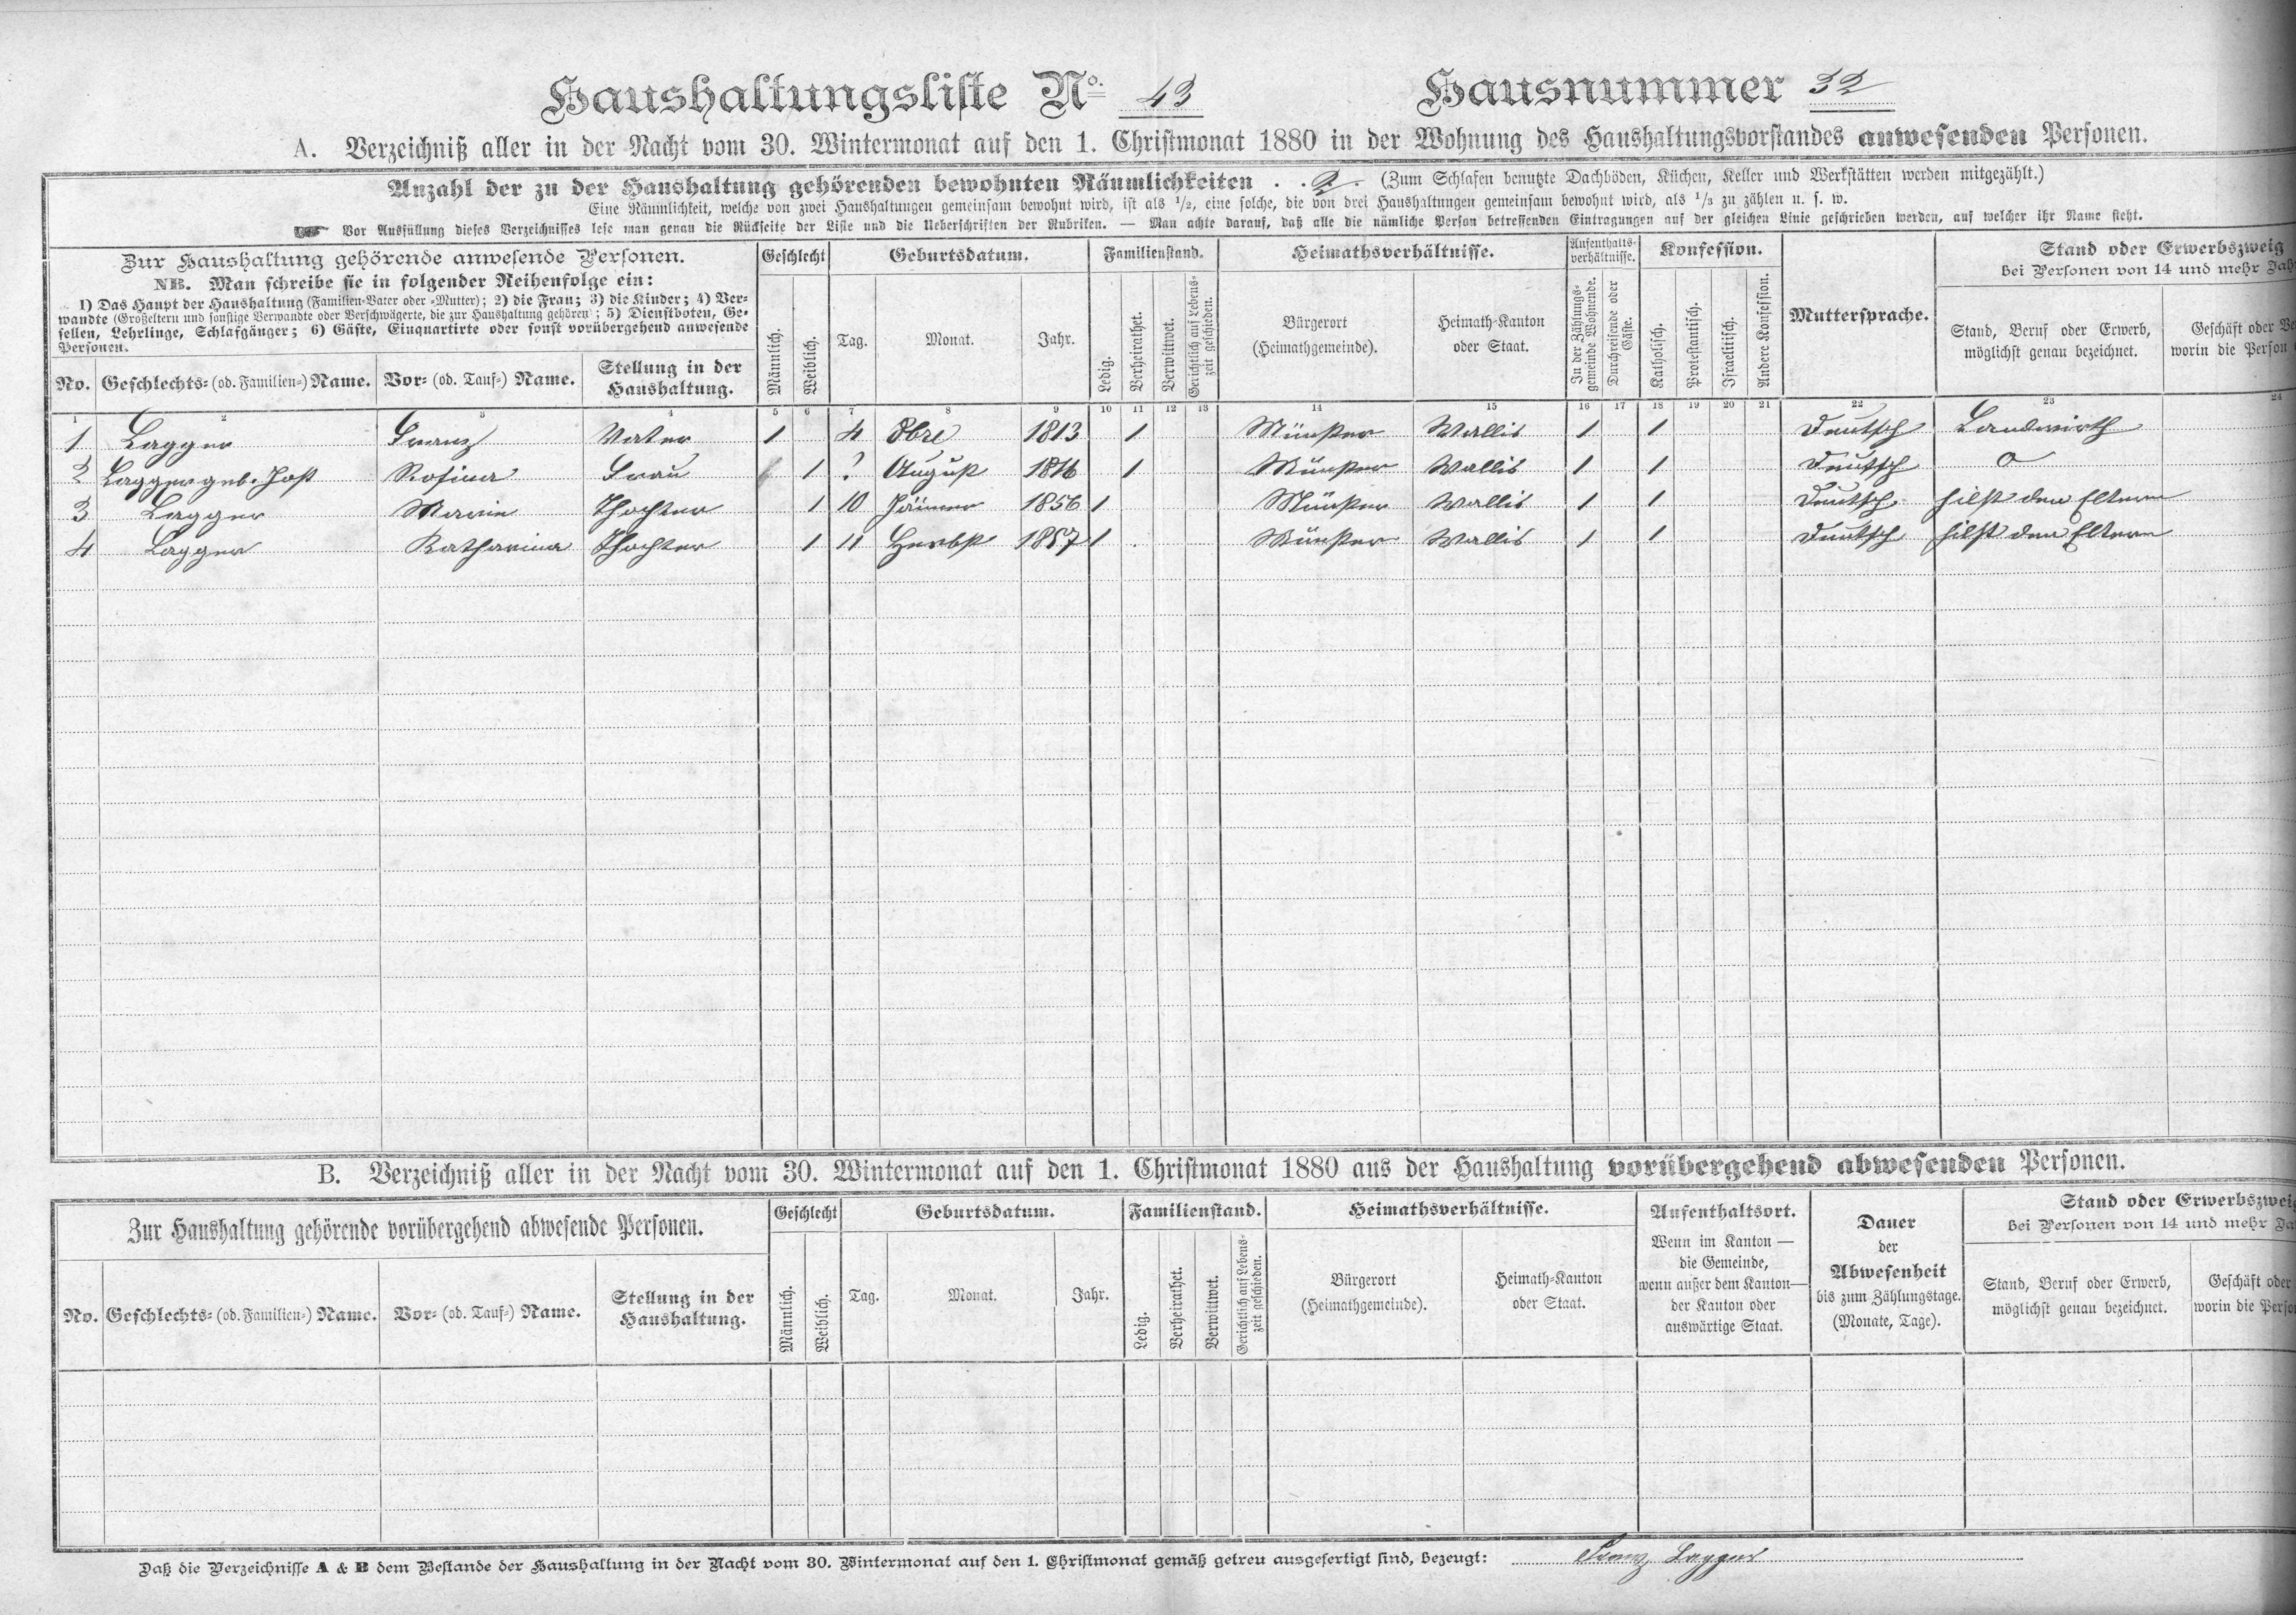 Haushaltungsliste No. 43 Hausnummer 32
A. Verzeichniß aller in der Nacht vom 30. Wintermonat auf den 1. Christmonat 1880 in der Wohnung des Haushaltungsvorstandes anwesenden Personen.
Anzahl der zu der Haushaltung gehörenden bewohnten Räumlichkeiten . . 2 . (Zum Schlafen benutzte Dachböden, Küchen, Keller und Werkstätten werden mitgezählt.)
Eine Räumlichkeit, welche von zwei Haushaltungen gemeinsam bewohnt wird, ist als 1/2, eine solche, die von drei Haushaltungen gemeinsam bewohnt wird, als 1/3 zu zählen u. s. w.
Vor Ausfüllung dieses Verzeichnisses lese man genau die Rückseite der Liste und die Ueberschriften der Rubriken. — Man achte darauf, daß alle die nämliche Person betreffenden Eintragungen auf der gleichen Linie geschrieben werden, auf welcher ihr Name steht.
Zur Haushaltung gehörende anwesende Personen.
NB. Man schreibe sie in folgender Reihenfolge ein:
1) Das Haupt der Haushaltung (Familien-Vater oder -Mutter); 2) die Frau; 3) die Kinder; 4) Ver-
wandte (Großeltern und sonstige Verwandte oder Verschwägerte, die zur Haushaltung gehören); 5) Dienstboten, Ge-
sellen, Lehrlinge, Schlafgänger; 6) Gäste, Einquartirte oder sonst vorübergehend anwesende
Personen.
No. Geschlechts- (od. Familien-) Name. Vor- (od. Tauf-) Name. Stellung in der
Haushaltung.
Geschlecht
Männlich. Weiblich.
Geburtsdatum.
Tag. Monat. Jahr.
Familienstand.
Ledig. Verheirathet. Verwittwet. Gerichtlich auf Lebens-
zeit geschieden.
Heimathsverhältnisse.
Bürgerort
(Heimathgemeinde).
Heimath-Kanton
oder Staat.
Aufenthalts-
verhältnisse.
In der Zählungs-
gemeinde Wohnende.
Durchreisende oder
Gäste.
Konfession.
Katholisch. Protestantisch. Israelitisch. Andere Konfession.
Muttersprache.
Stand oder Erwerbszweig
bei Personen von 14 und mehr
Stand, Beruf oder Erwerb,
möglichst genau bezeichnet.
Geschäft oder
worin die Person
1 2 3 4 5 6 7 8 9 10 11 12 13 14 15 16 17 18 19 20 21 22 23 24
1 Lagger Franz Vater 1 4 8bre 1813 1 Münster Wallis 1 1 Deutsch Landwirth
2 Lagger geb. Jost Rosina Frau 1 ? August 1816 1 Münster Wallis 1 1 Deutsch o
3 Lagger Marie Thochter 1 10 Jänner 1856 1 Münster Wallis 1 1 Deutsch hilft den Eltern
4 Lagger Katharina Thochter 1 11 Herbst 1857 1 Münster Wallis 1 1 Deutsch hilft den Eltern
B. Verzeichniß aller in der Nacht vom 30. Wintermonat auf den 1. Christmonat 1880 aus der Haushaltung vorübergehend abwesenden Personen.
Zur Haushaltung gehörende vorübergehend abwesende Personen.
No. Geschlechts- (od. Familien-) Name. Vor- (od. Tauf-) Name. Stellung in der
Haushaltung.
Geschlecht
Männlich. Weiblich.
Geburtsdatum.
Tag. Monat. Jahr.
Familienstand.
Ledig. Verheirathet. Verwittwet. Gerichtlich auf Lebens-
zeit geschieden.
Heimathsverhältnisse.
Bürgerort
(Heimathgemeinde).
Heimath-Kanton
oder Staat.
Aufenthaltsort.
Wenn im Kanton —
die Gemeinde,
wenn außer dem Kanton—
der Kanton oder
auswärtige Staat.
Dauer
der
Abwesenheit
bis zum Zählungstage.
(Monate, Tage).
Stand oder Erwerbszweig
bei Personen von 14 und mehr
Stand, Beruf oder Erwerb,
möglichst genau bezeichnet.
Geschäft oder
worin die
Daß die Verzeichnisse A & B dem Bestande der Haushaltung in der Nacht vom 30. Wintermonat auf den 1. Christmonat gemäß getreu ausgefertigt sind, bezeugt: Franz Lagger